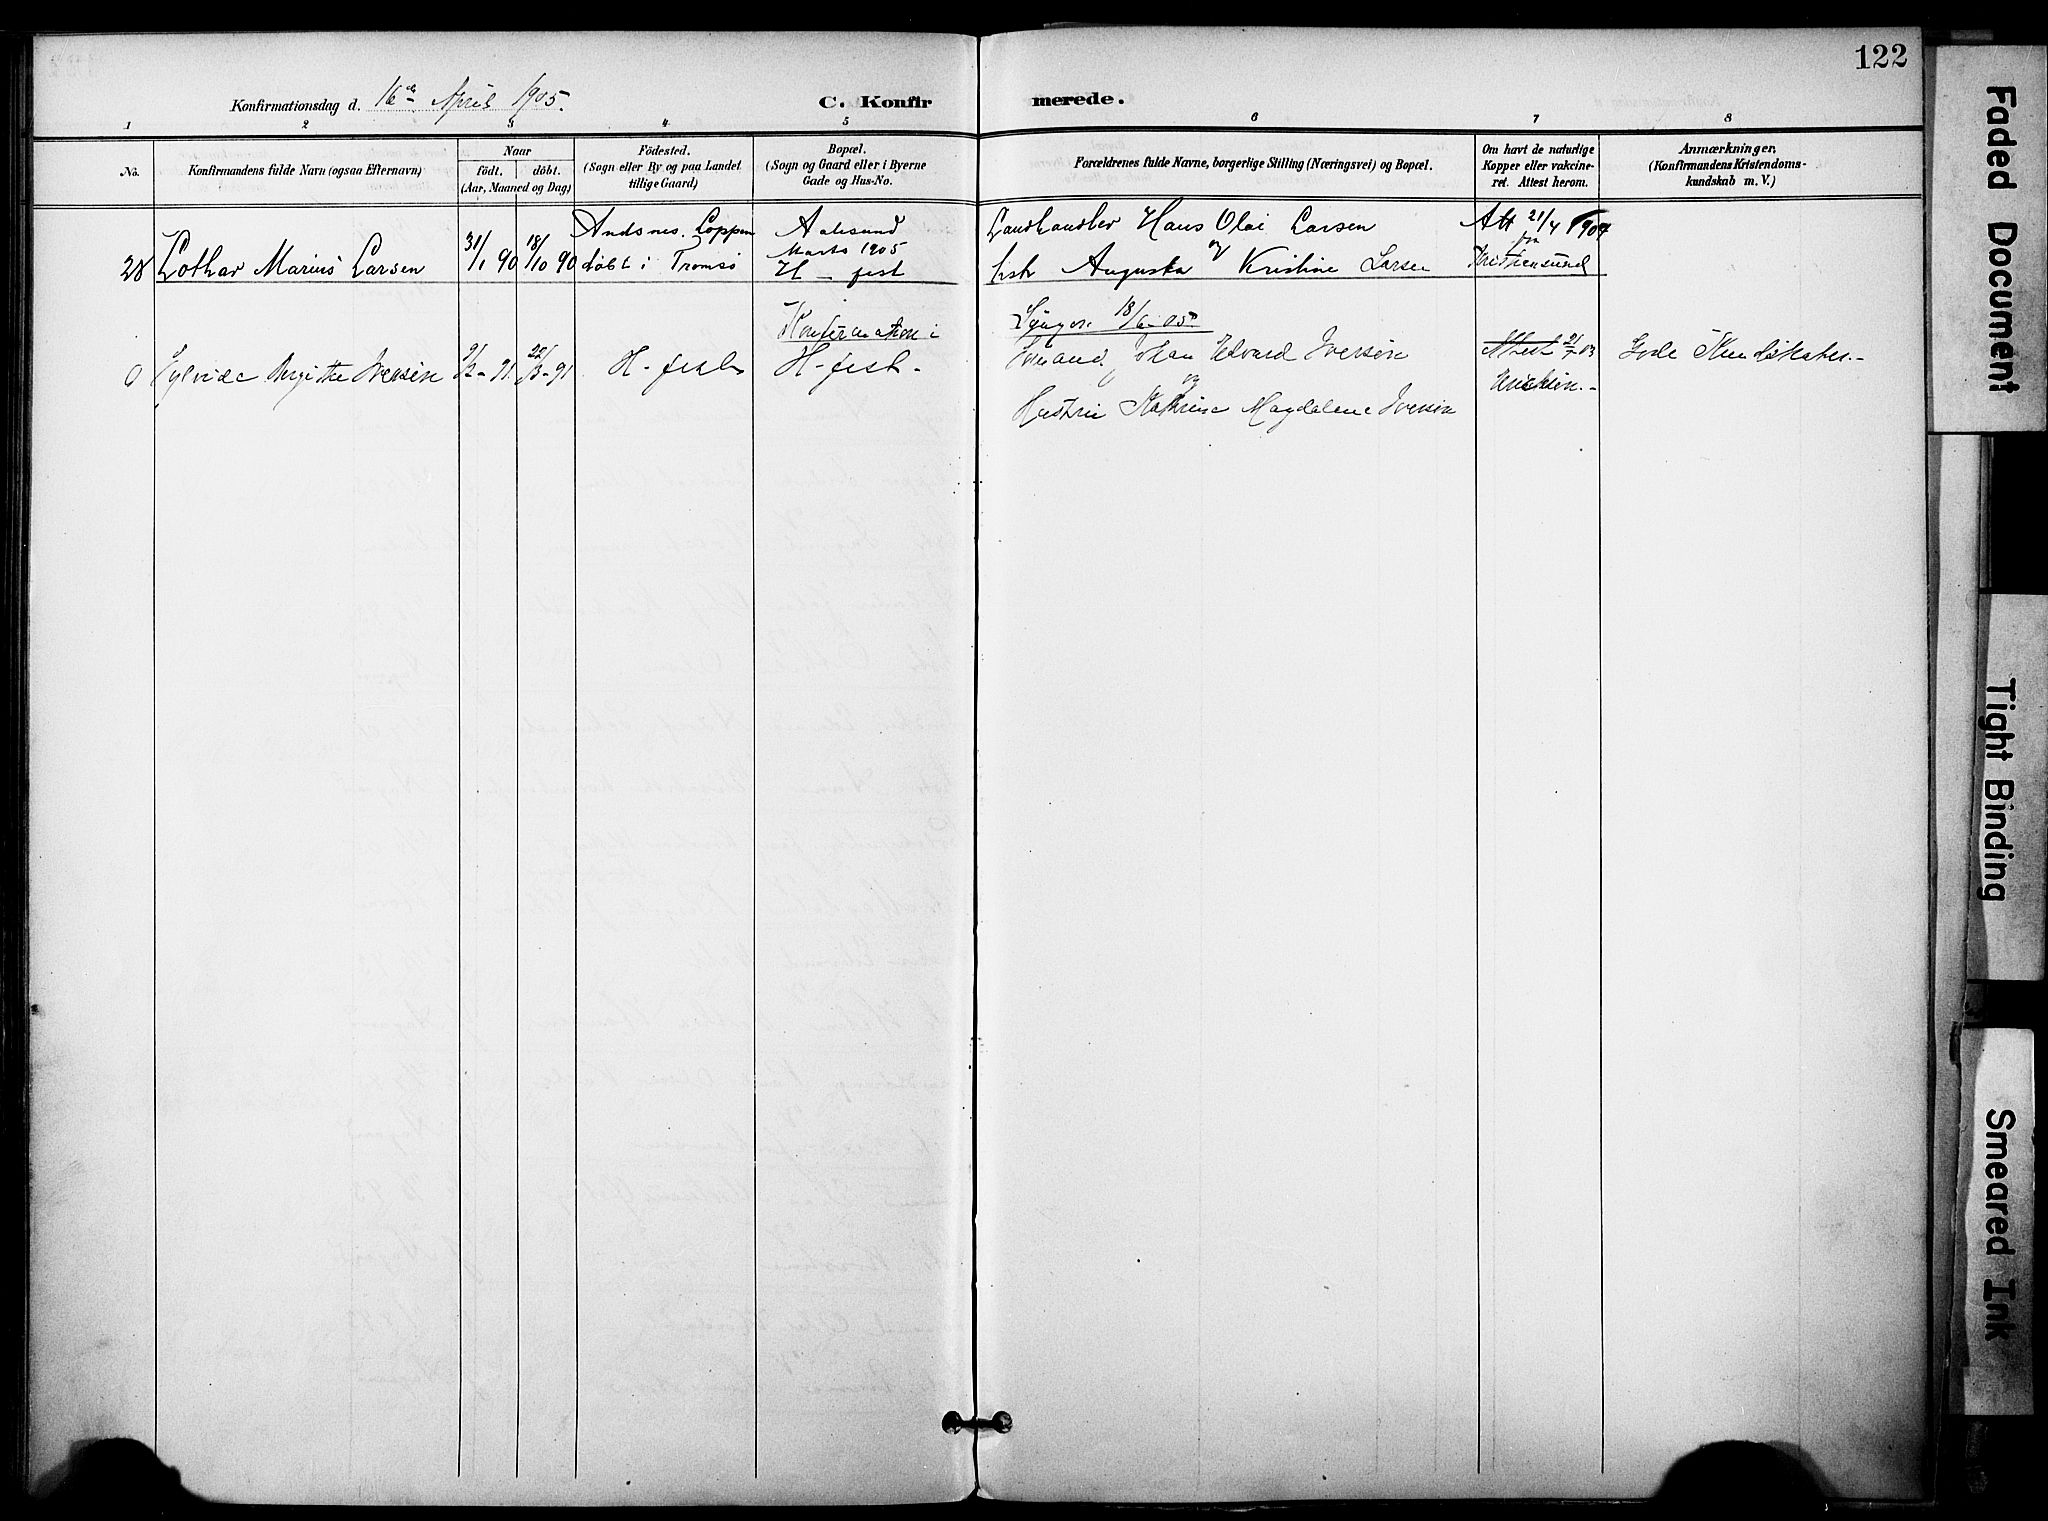 122
Konfirmationsdag d. 16de April 1905.
C. Konfirmerede.
1 2 3 4 5 6 7 8
No.
Konfirmandens fulde Navn (ogsaa Efternavn)
Naar
födt. döbt.
(Aar, Maaned og Dag)
Födested.
(Sogn eller By og paa Landet
tillige Gaard)
Bopæl.
(Sogn og Gaard eller i Byerne
Gade og Hus-No.
Forældrenes fulde Navne, borgerlige Stilling (Næringsvei) og Bopæl.
Om havt de naturlige
Kopper eller vakcine-
ret. Attest herom.
Anmærkninger.
(Konfirmandens Kristendoms-
kundskab m. V.)
28 Lothar Marius Larsen
31/1 90 18/10 90
Andsnes. Loppen
döbt i Tromsö
Aalesund
Marts 1905
H-fest
Landhandler Hans Olai Larsen
og
Augusta Kristine Larsen
Att 21/4 1904
fra
Kristiansund
Konfirmation i
18/6 05
Iversen
9/2 - 91. 22/3 - 91
H-fest
H-fest -
Johan Edvard Iversen
og
Hustru Kathrine Magdalene Iversen
Attest 21/7 03
Gode Kundskaber.-
Faded Document
Tight Binding
Smeared Ink